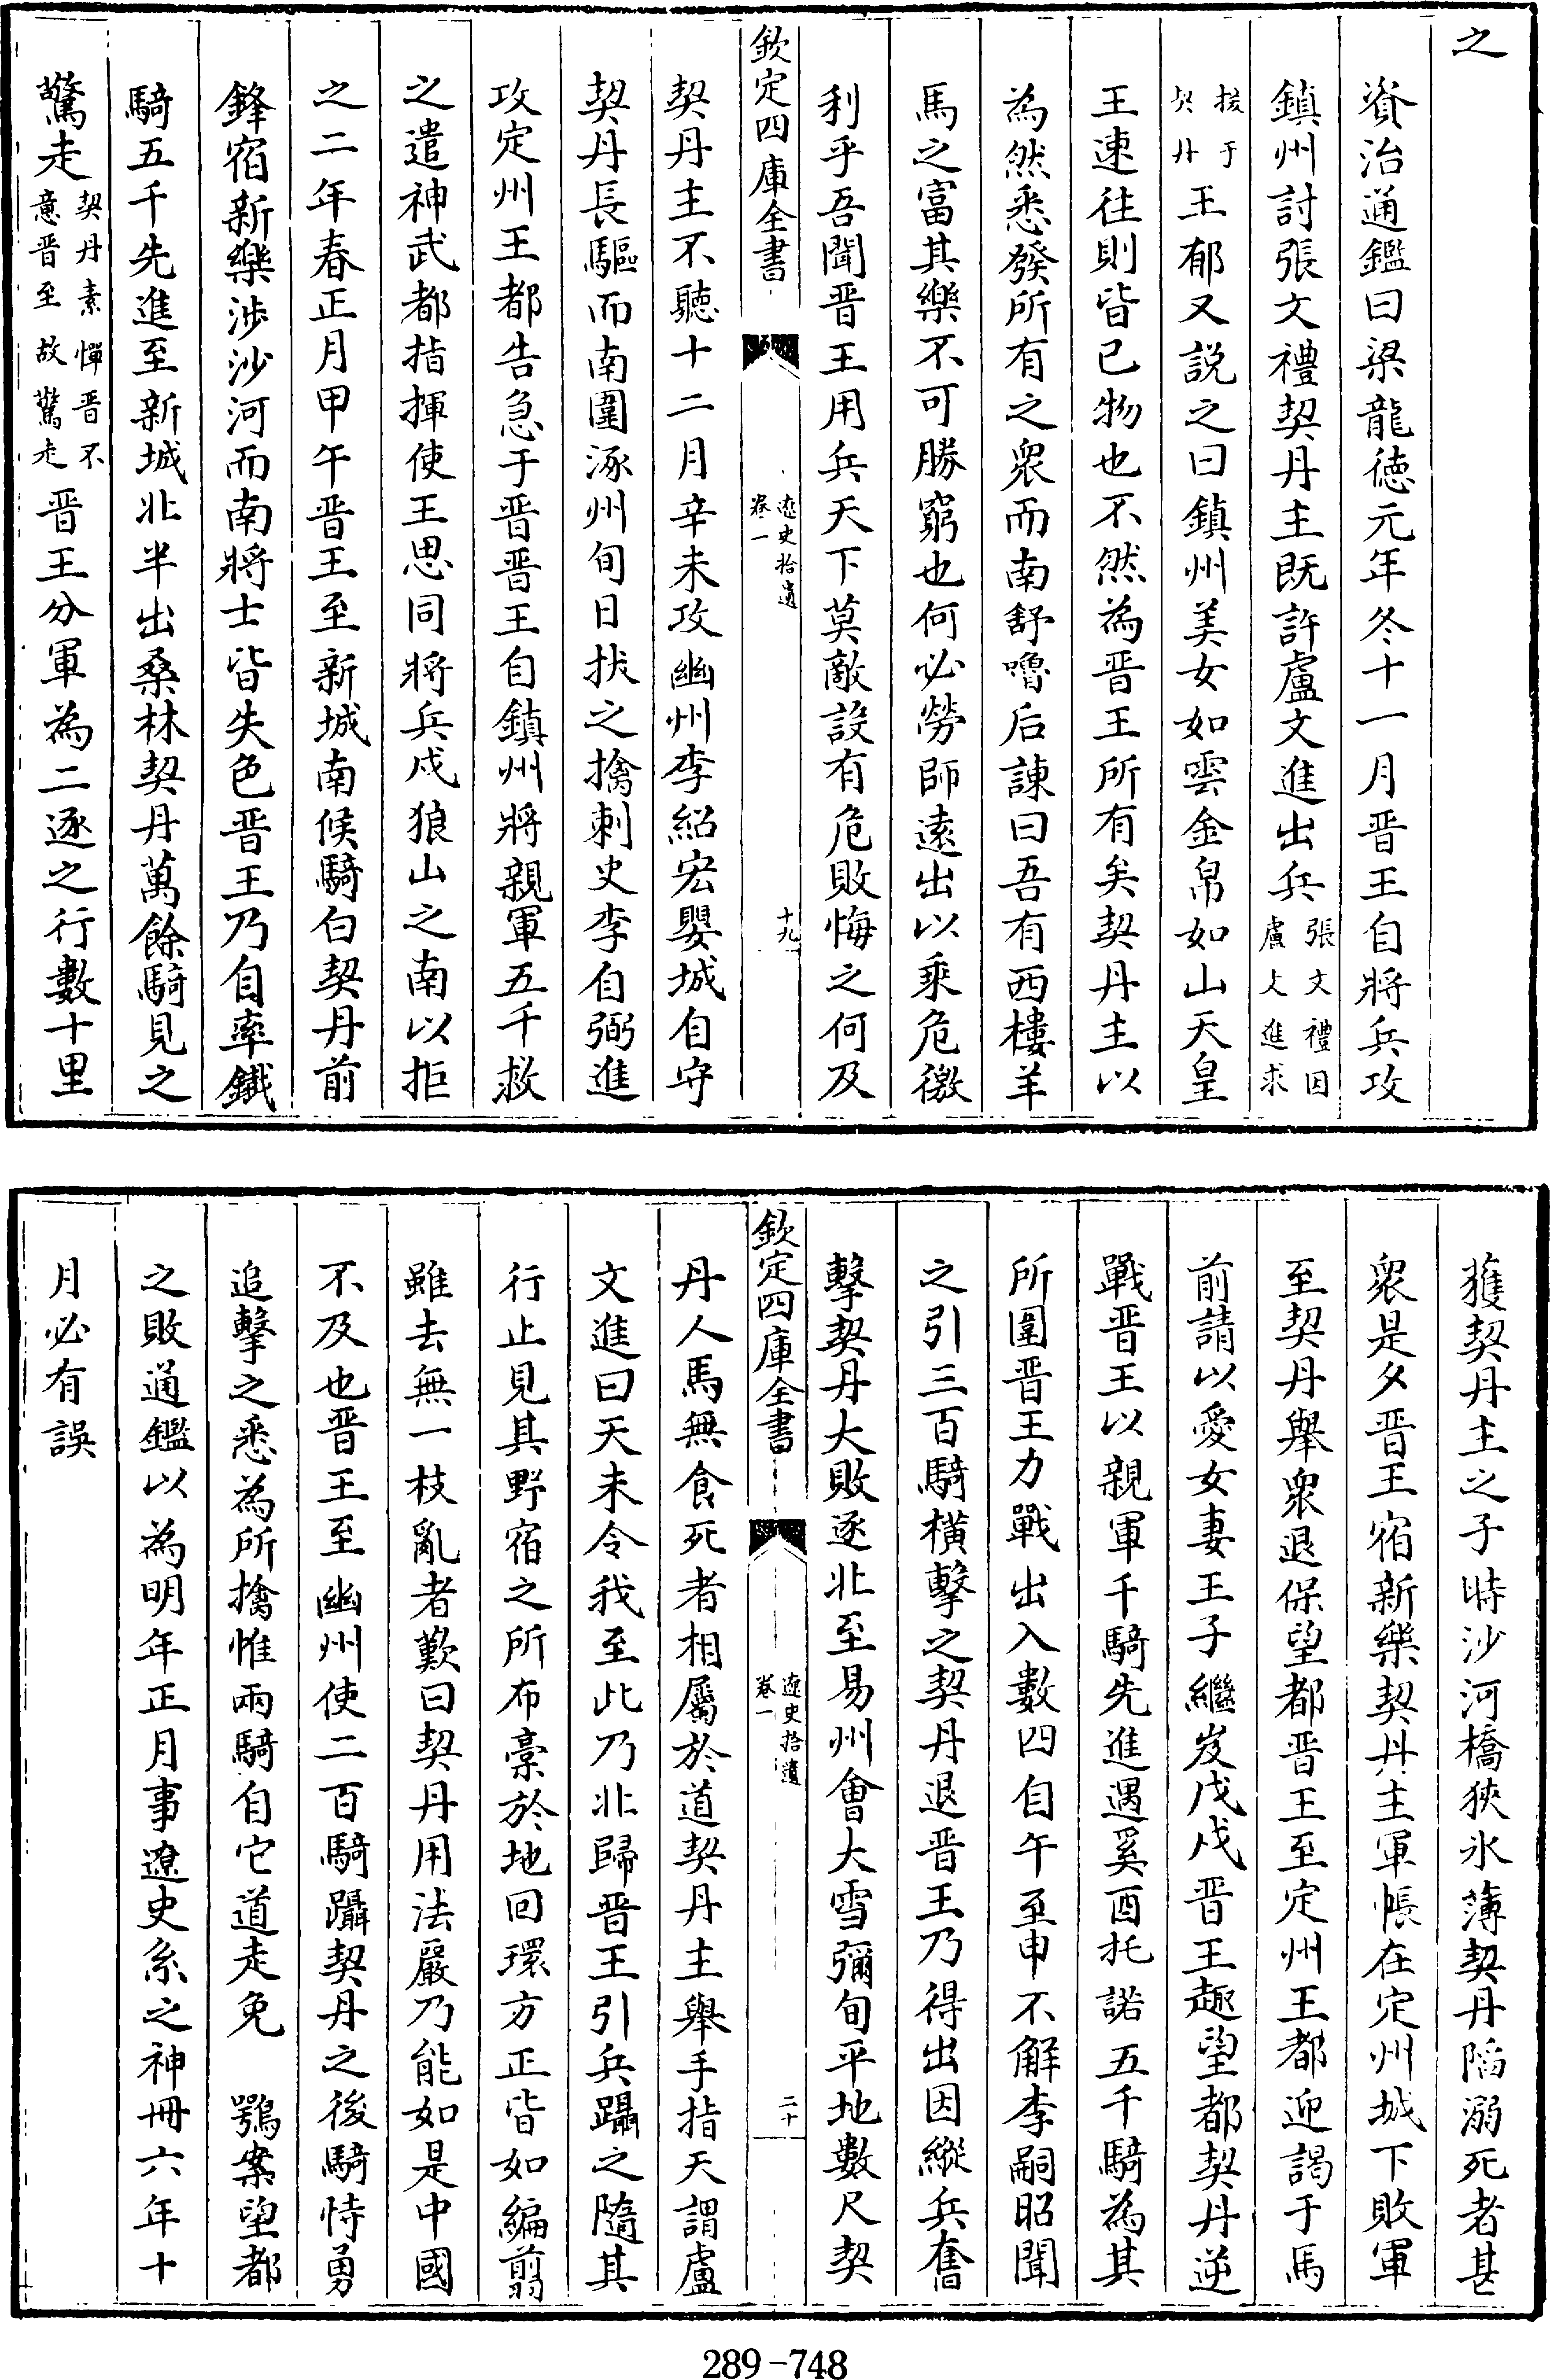 之
資治通鑑曰梁龍徳元年冬十一月晋王自將兵攻
鎮州討張文禮契丹主既許盧文進出兵張文禮因盧文進求
援于契丹王郁又説之曰鎮州美女如雲金帛如山天皇
王速往則皆已物也不然為晋王所有矣契丹主以
為然悉發所有之衆而南舒嚕后諫曰吾有西樓羊
馬之富其樂不可勝窮也何必勞師遠出以乘危徼
利乎吾聞晋王用兵天下莫敵設有危敗悔之何及
欽定四庫全書
遼史拾遺
卷一
十九
契丹主不聽十二月辛未攻幽州李紹宏嬰城自守
契丹長驅而南圍涿州旬日㧞之擒刺史李自弼進
攻定州王都告急于晋晋王自鎮州將親軍五千救
之遣神武都指揮使王思同將兵戍狼山之南以拒
之二年春正月甲午晋王至新城南候騎白契丹前
鋒宿新樂涉沙河而南將士皆失色晋王乃自率鐵
騎五千先進至新城北半出桑林契丹萬餘騎見之
驚走契丹素憚晋不意晋至故驚走晋王分軍為二逐之行數十里
獲契丹主之子時沙河橋狹氷薄契丹陷溺死者甚
衆是夕晋王宿新樂契丹主軍帳在定州城下敗軍
至契丹舉衆退保望都晋王至定州王都迎謁于馬
前請以愛女妻王子繼岌戊戌晋王趣望都契丹逆
戰晋王以親軍千騎先進遇奚酋托諾五千騎為其
所圍晋王力戰出入數四自午至申不解李嗣昭聞
之引三百騎橫擊之契丹退晋王乃得出因縱兵奮
擊契丹大敗逐北至易州會大雪彌旬平地數尺契
欽定四庫全書
遼史拾遺
卷一
二十
丹人馬無食死者相屬於道契丹主舉手指天謂盧
文進曰天未令我至此乃北歸晋王引兵躡之隨其
行止見其野宿之所布藁於地回環方正皆如編翦
雖去無一枝亂者歎曰契丹用法嚴乃能如是中國
不及也晋王至幽州使二百騎躡契丹之後騎恃勇
追擊之悉為所擒惟兩騎自它道走免　鶚案望都
之敗通鑑以為明年正月事遼史系之神冊六年十
月必有誤
289-748